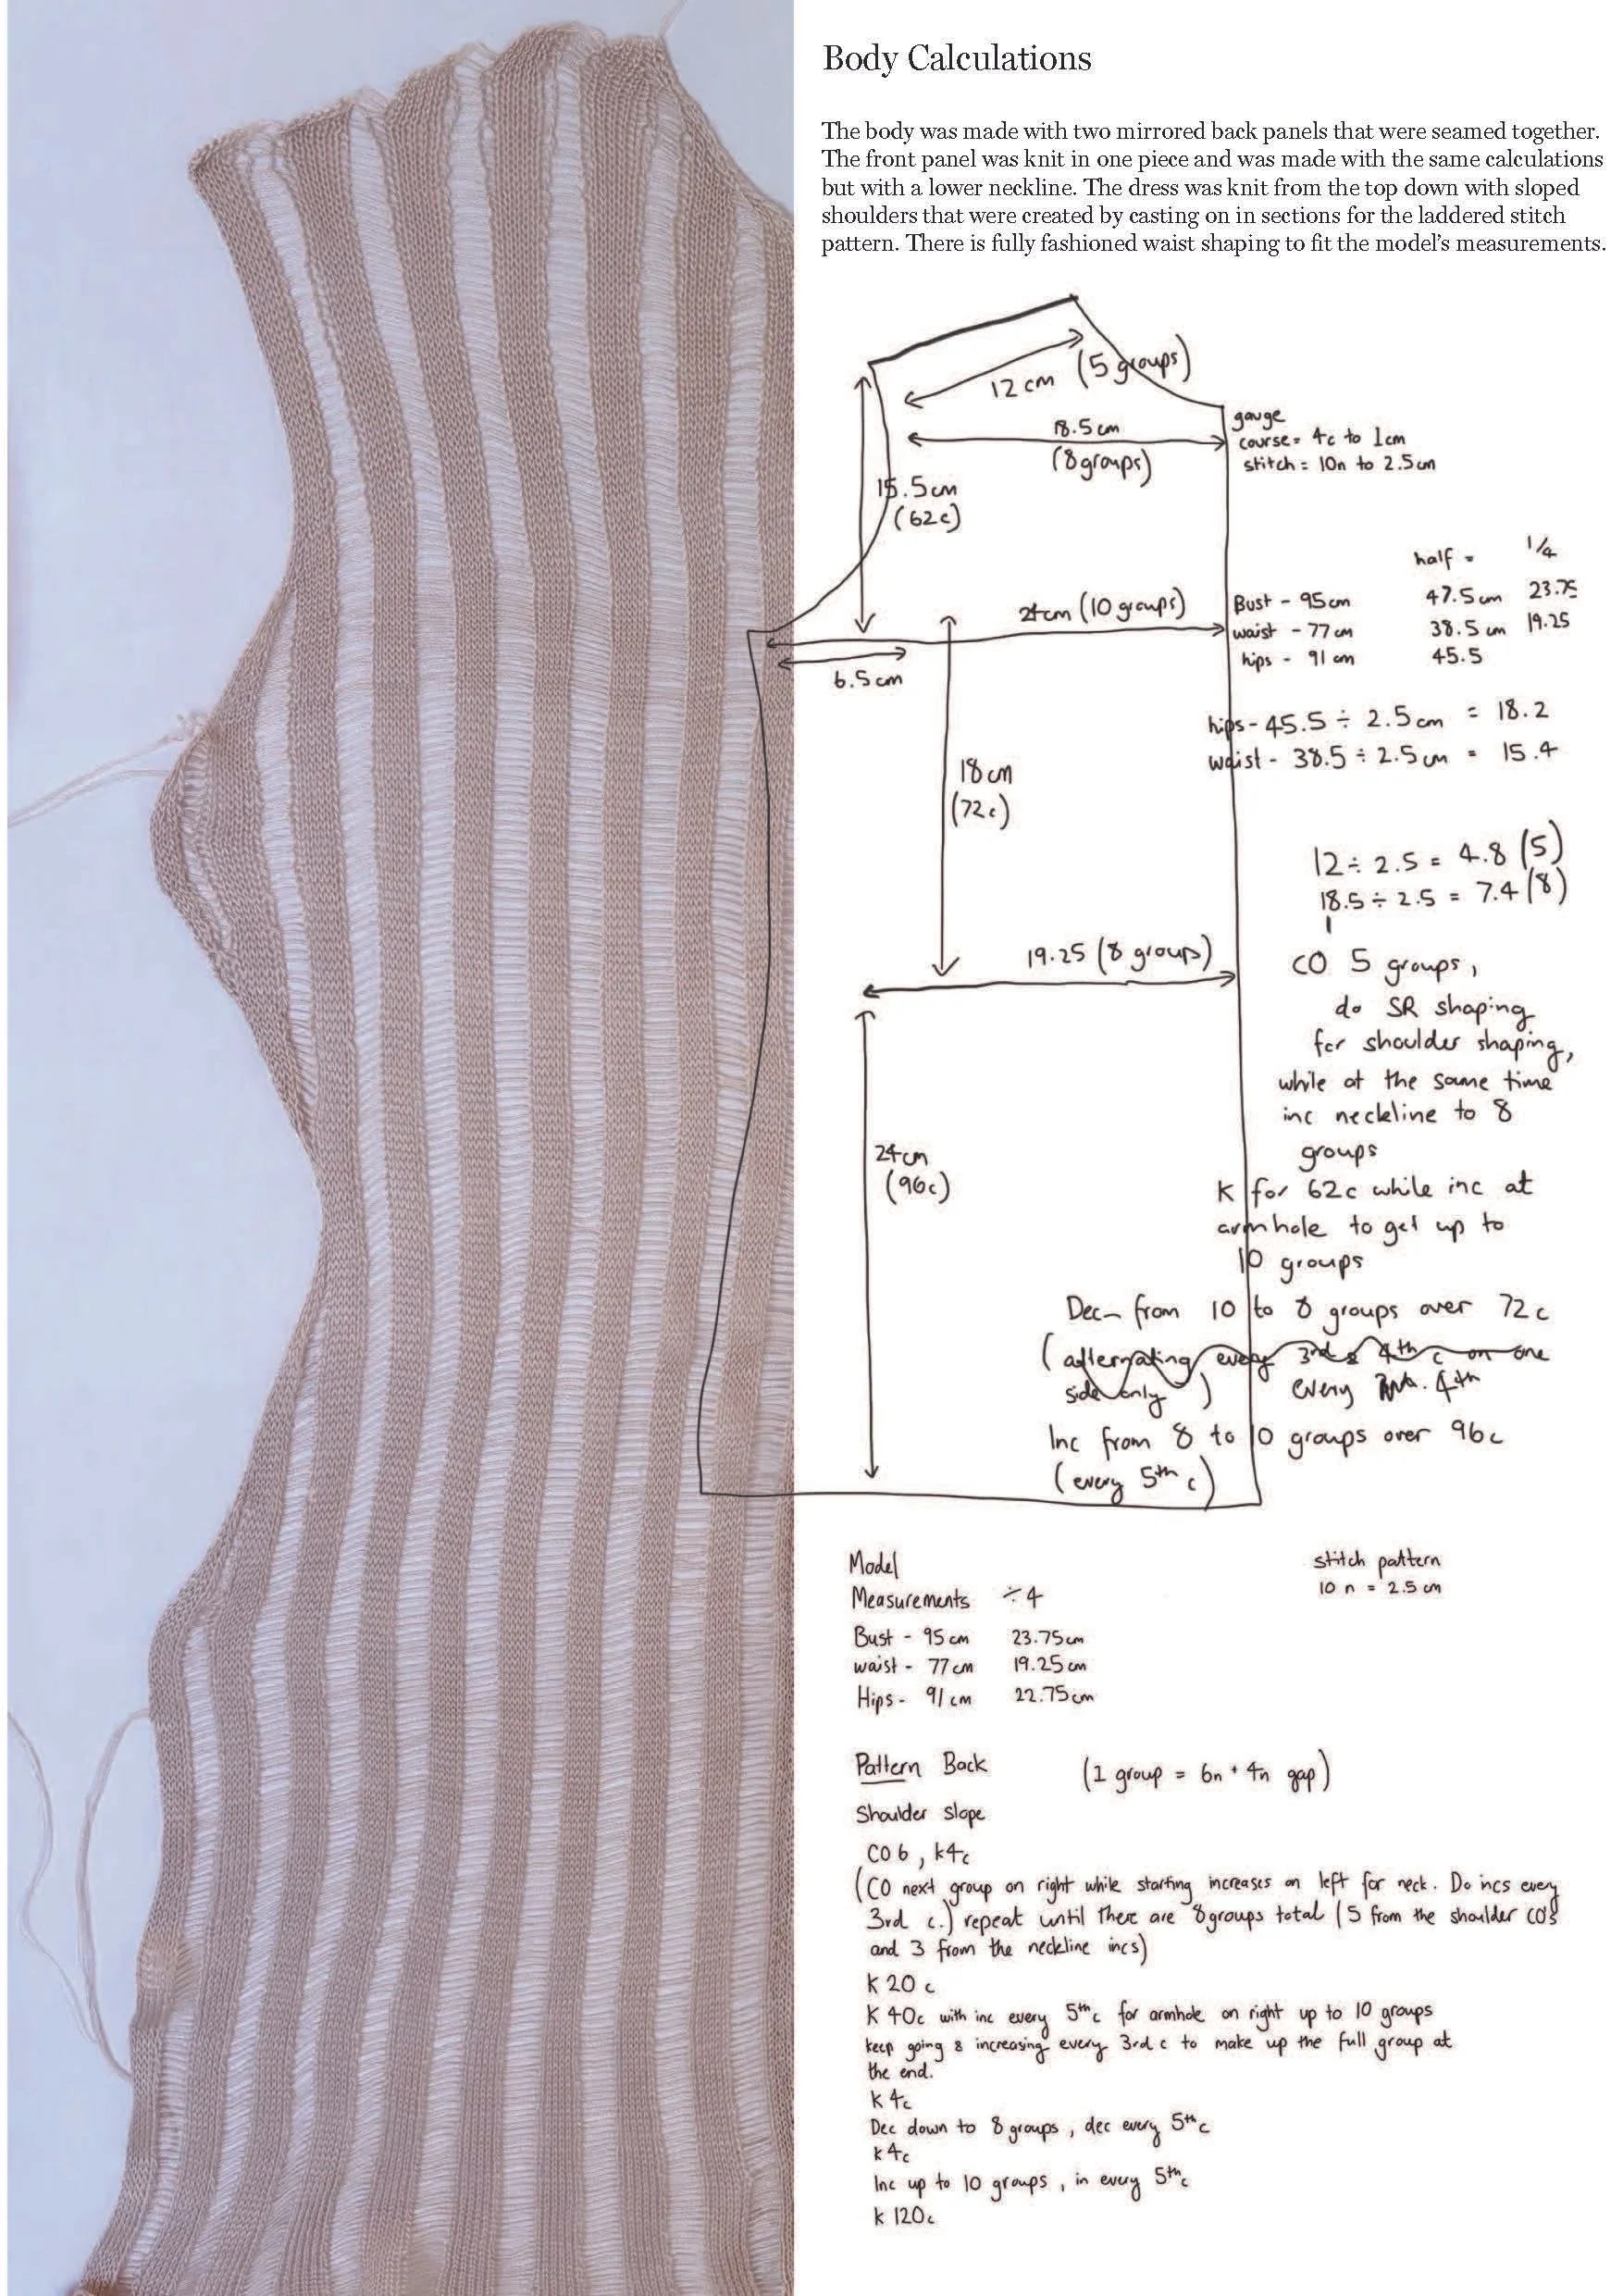 Body Calculations
The body was made with two mirrored back panels that were seamed together.
The front panel was knit in one piece and was made with the same calculations
but with a lower neckline. The dress was knit from the top down with sloped
shoulders that were created by casting on in sections for the laddered stitch
pattern. There is fully fashioned waist shaping to fit the model's measurements.
12 cm (5 groups)
18.5 cm
(8 groups)
gauge
course = 4c to 1cm
stitch = 10n to 2.5cm
15.5cm
(62c)
half = 1/4
24cm (10 groups)
Bust - 95cm 47.5cm 23.75
waist - 77cm 38.5 cm 19.25
hips - 91 cm 45.5
6.5cm
hips - 45.5 ÷ 2.5cm = 18.2
waist - 38.5 ÷ 2.5cm = 15.4
18cm
(72c)
12 ÷ 2.5 = 4.8 (5)
18.5 ÷ 2.5 = 7.4 (8)
19.25 (8 groups)
CO 5 groups,
do SR shaping
for shoulder shaping,
while at the same time
inc neckline to 8
groups
24cm
(96c)
K for 62c while inc at
armhole to get up to
10 groups
Dec from 10 to 8 groups over 72c
(alternating every 3rd & 4th c on one
side only) every 4th
Inc from 8 to 10 groups over 96c
(every 5th c)
Model
Measurements ÷4
Bust - 95cm 23.75cm
waist - 77cm 19.25cm
Hips - 91cm 22.75cm
stitch pattern
10 n = 2.5 cm
Pattern Back (1 group = 6n + 4n gap)
Shoulder Slope
CO 6, k4c
(CO next group on right while starting increases on left for neck. Do incs every
3rd c.) repeat until there are 8 groups total (5 from the shoulder CO's
and 3 from the neckline incs)
K 20c
K 40c with inc every 5th c for armhole on right up to 10 groups
keep going & increasing every 3rd c to make up the full group at
the end.
K 4c
Dec down to 8 groups, dec every 5th c
K 4c
Inc up to 10 groups, in every 5th c
k 120c